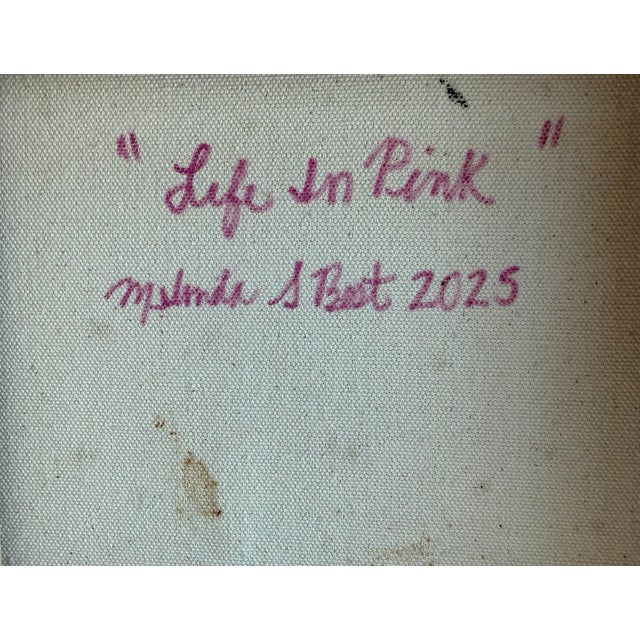 " Life In Pink "
Melinda S Best 2025